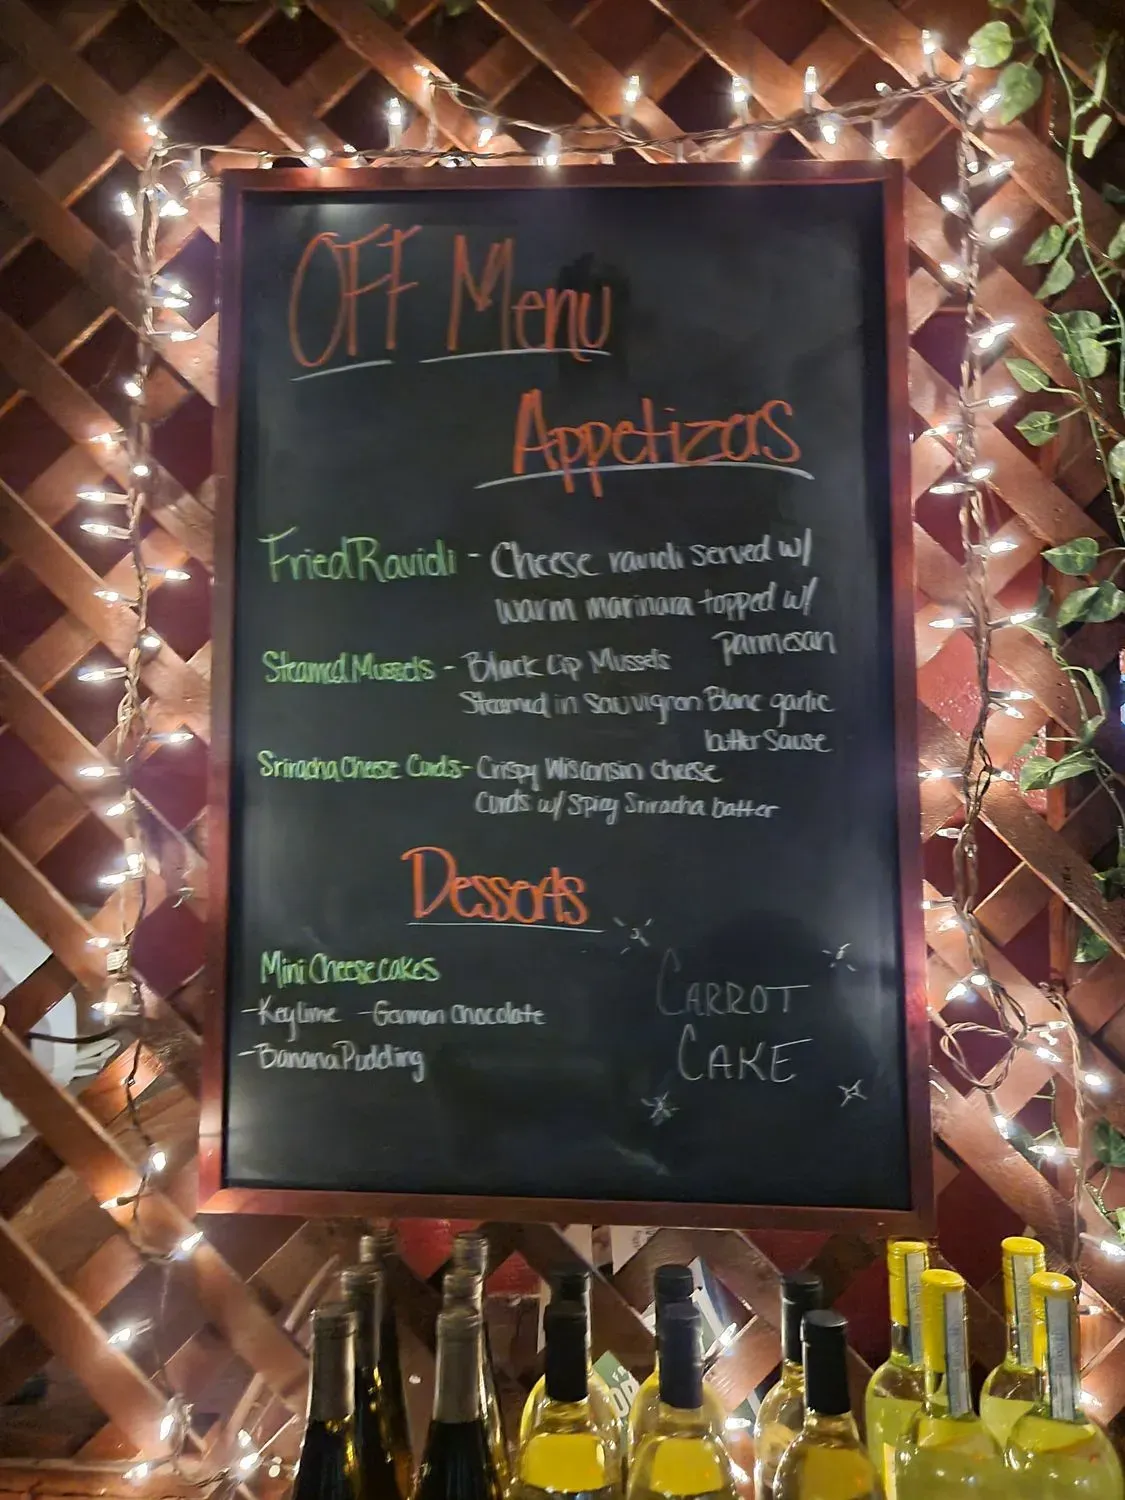 OFF Menu
Appetizers
Fried Ravioli - Cheese ravioli served w/
warm marinara topped w/
parmesan
Steamed Mussels - Black Lip Mussels
Steamed in Sauvignon Blanc garlic
butter Sause
Sriracha Cheese Curds - Crispy Wisconsin cheese
Curds w/ Spicy Sriracha batter
Desserts
Mini Cheesecakes
-Keylime -German Chocolate
-Banana Pudding
CARROT
CAKE